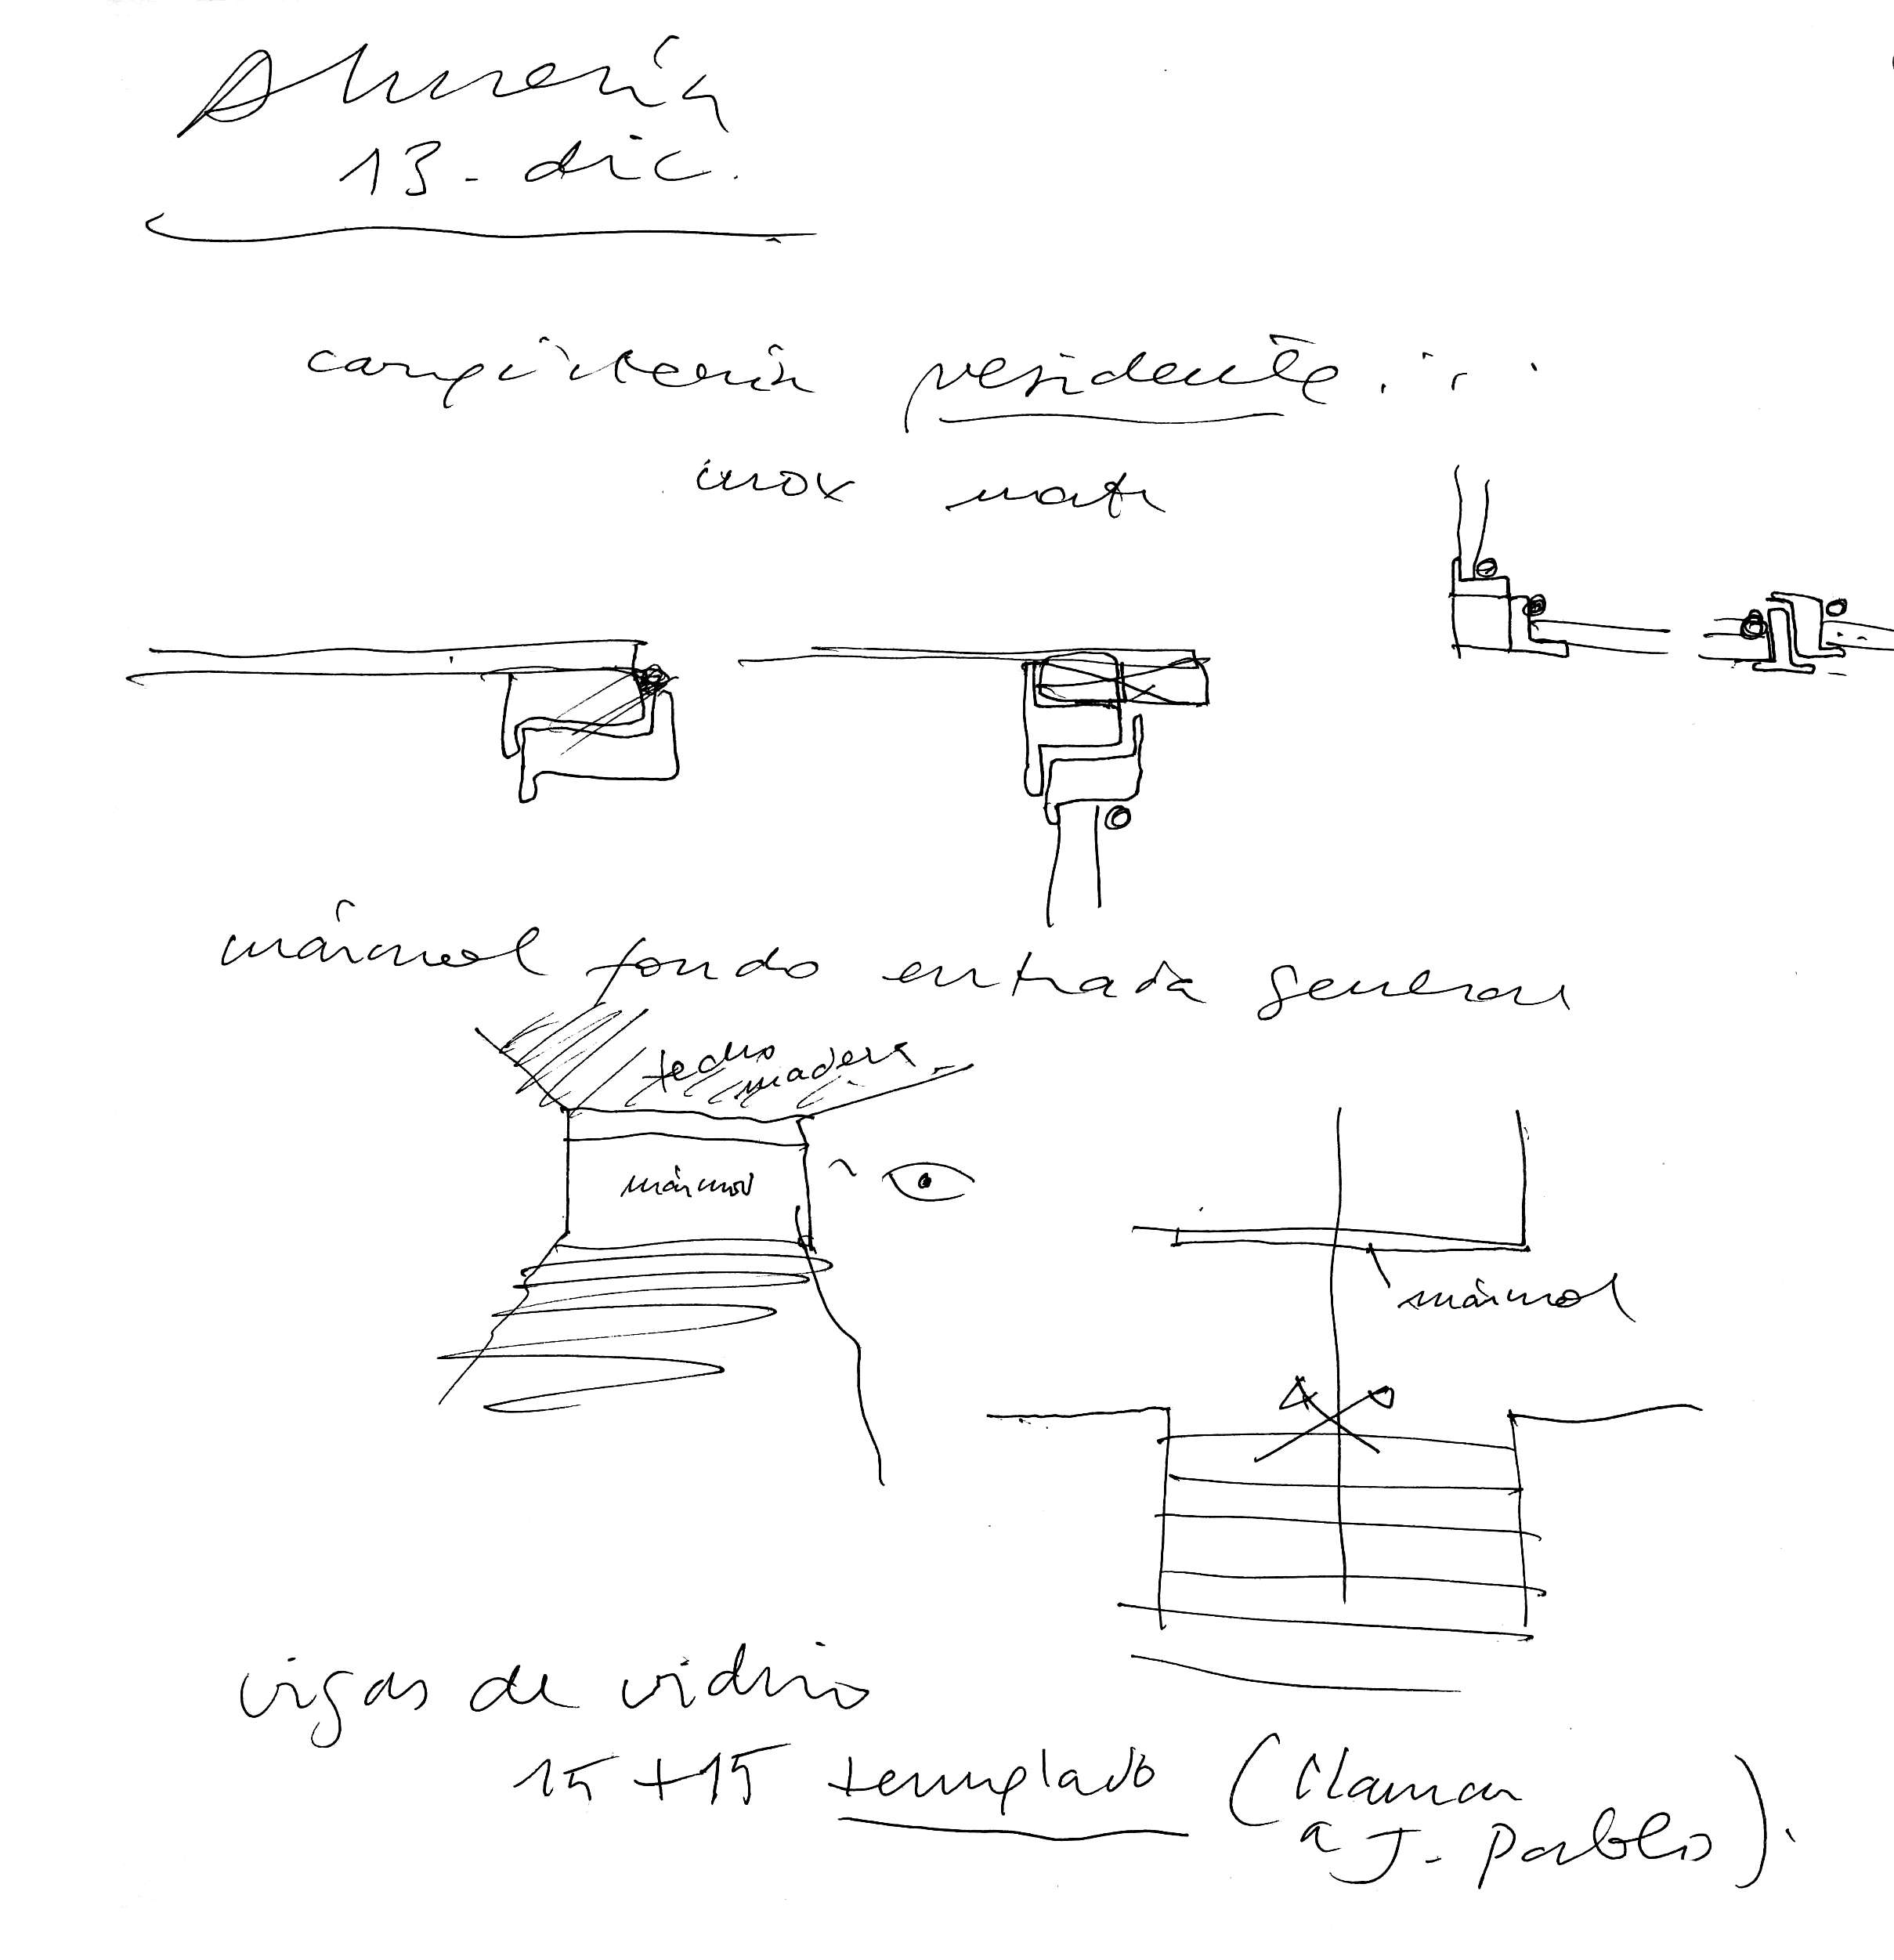 Almería
13 - dic.
carpintería presidente . . .
inox mate
mármol fondo entrada general
techo
madera
mármol
mármol
vigas de vidrio
15 + 15 templado (llamar
a J. Pablo).